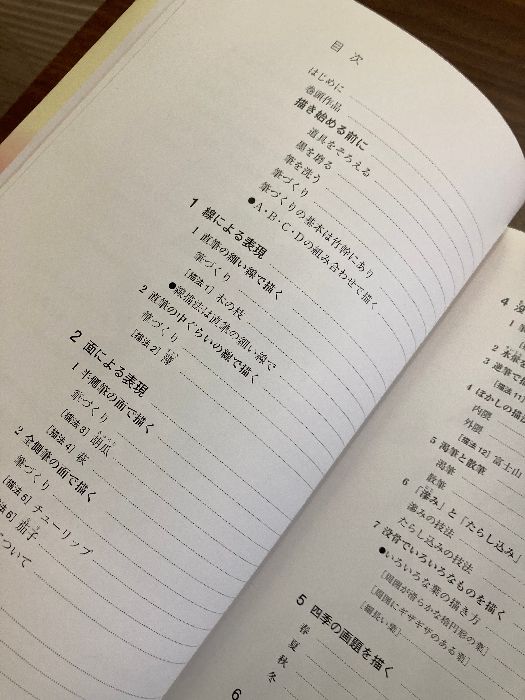 目次
はじめに
巻頭作品
描き始める前に
道具をそろえる
墨を磨る
筆を洗う
筆づくり
筆づくりの基本は竹幹にあり
●A・B・C・Dの組み合わせで描く
1 線による表現
1 直筆の細い線で描く
筆づくり
[描法1] 木の枝
●線描法は直筆の細い線で
2 直筆の中ぐらいの線で描く
筆づくり
[描法2] 薄
2 面による表現
1 半側筆の面で描く
筆づくり
[描法3] 胡瓜
[描法4] 萩
2 全側筆の面で描く
筆づくり
[描法5] チューリップ
[描法6] 茄子
ついて
4
1
2
3
[描法11]
4 ぼかしの描
内隈
外隈
[描法12] 富士山
5 渇筆と散筆
渇筆
散筆
6 「滲み」と「たらし込み」
滲みの技法
たらし込みの技法
7 没骨でいろいろなものを描く
●いろいろな葉の描き方
[周囲が滑らかな楕円形の葉]
[周囲にギザギザのある葉]
[細長い葉]
5 四季の画題を描く
春
夏
秋
冬
6